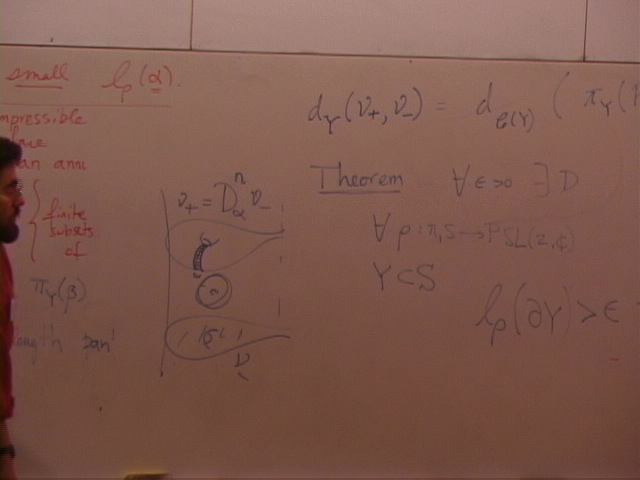 small ℓ_ρ(α).
an ann
{ finite
subsets
of
π_Y(β)
ν_+ = D_α^n ν_-
d_Y(ν_+, ν_-) = d_{C(Y)} ( π_Y(
Theorem ∀ε>0 ∃D
∀ρ: π_1S → PSL(2,ℂ)
Y⊂S
ℓ_ρ(∂Y) > ε